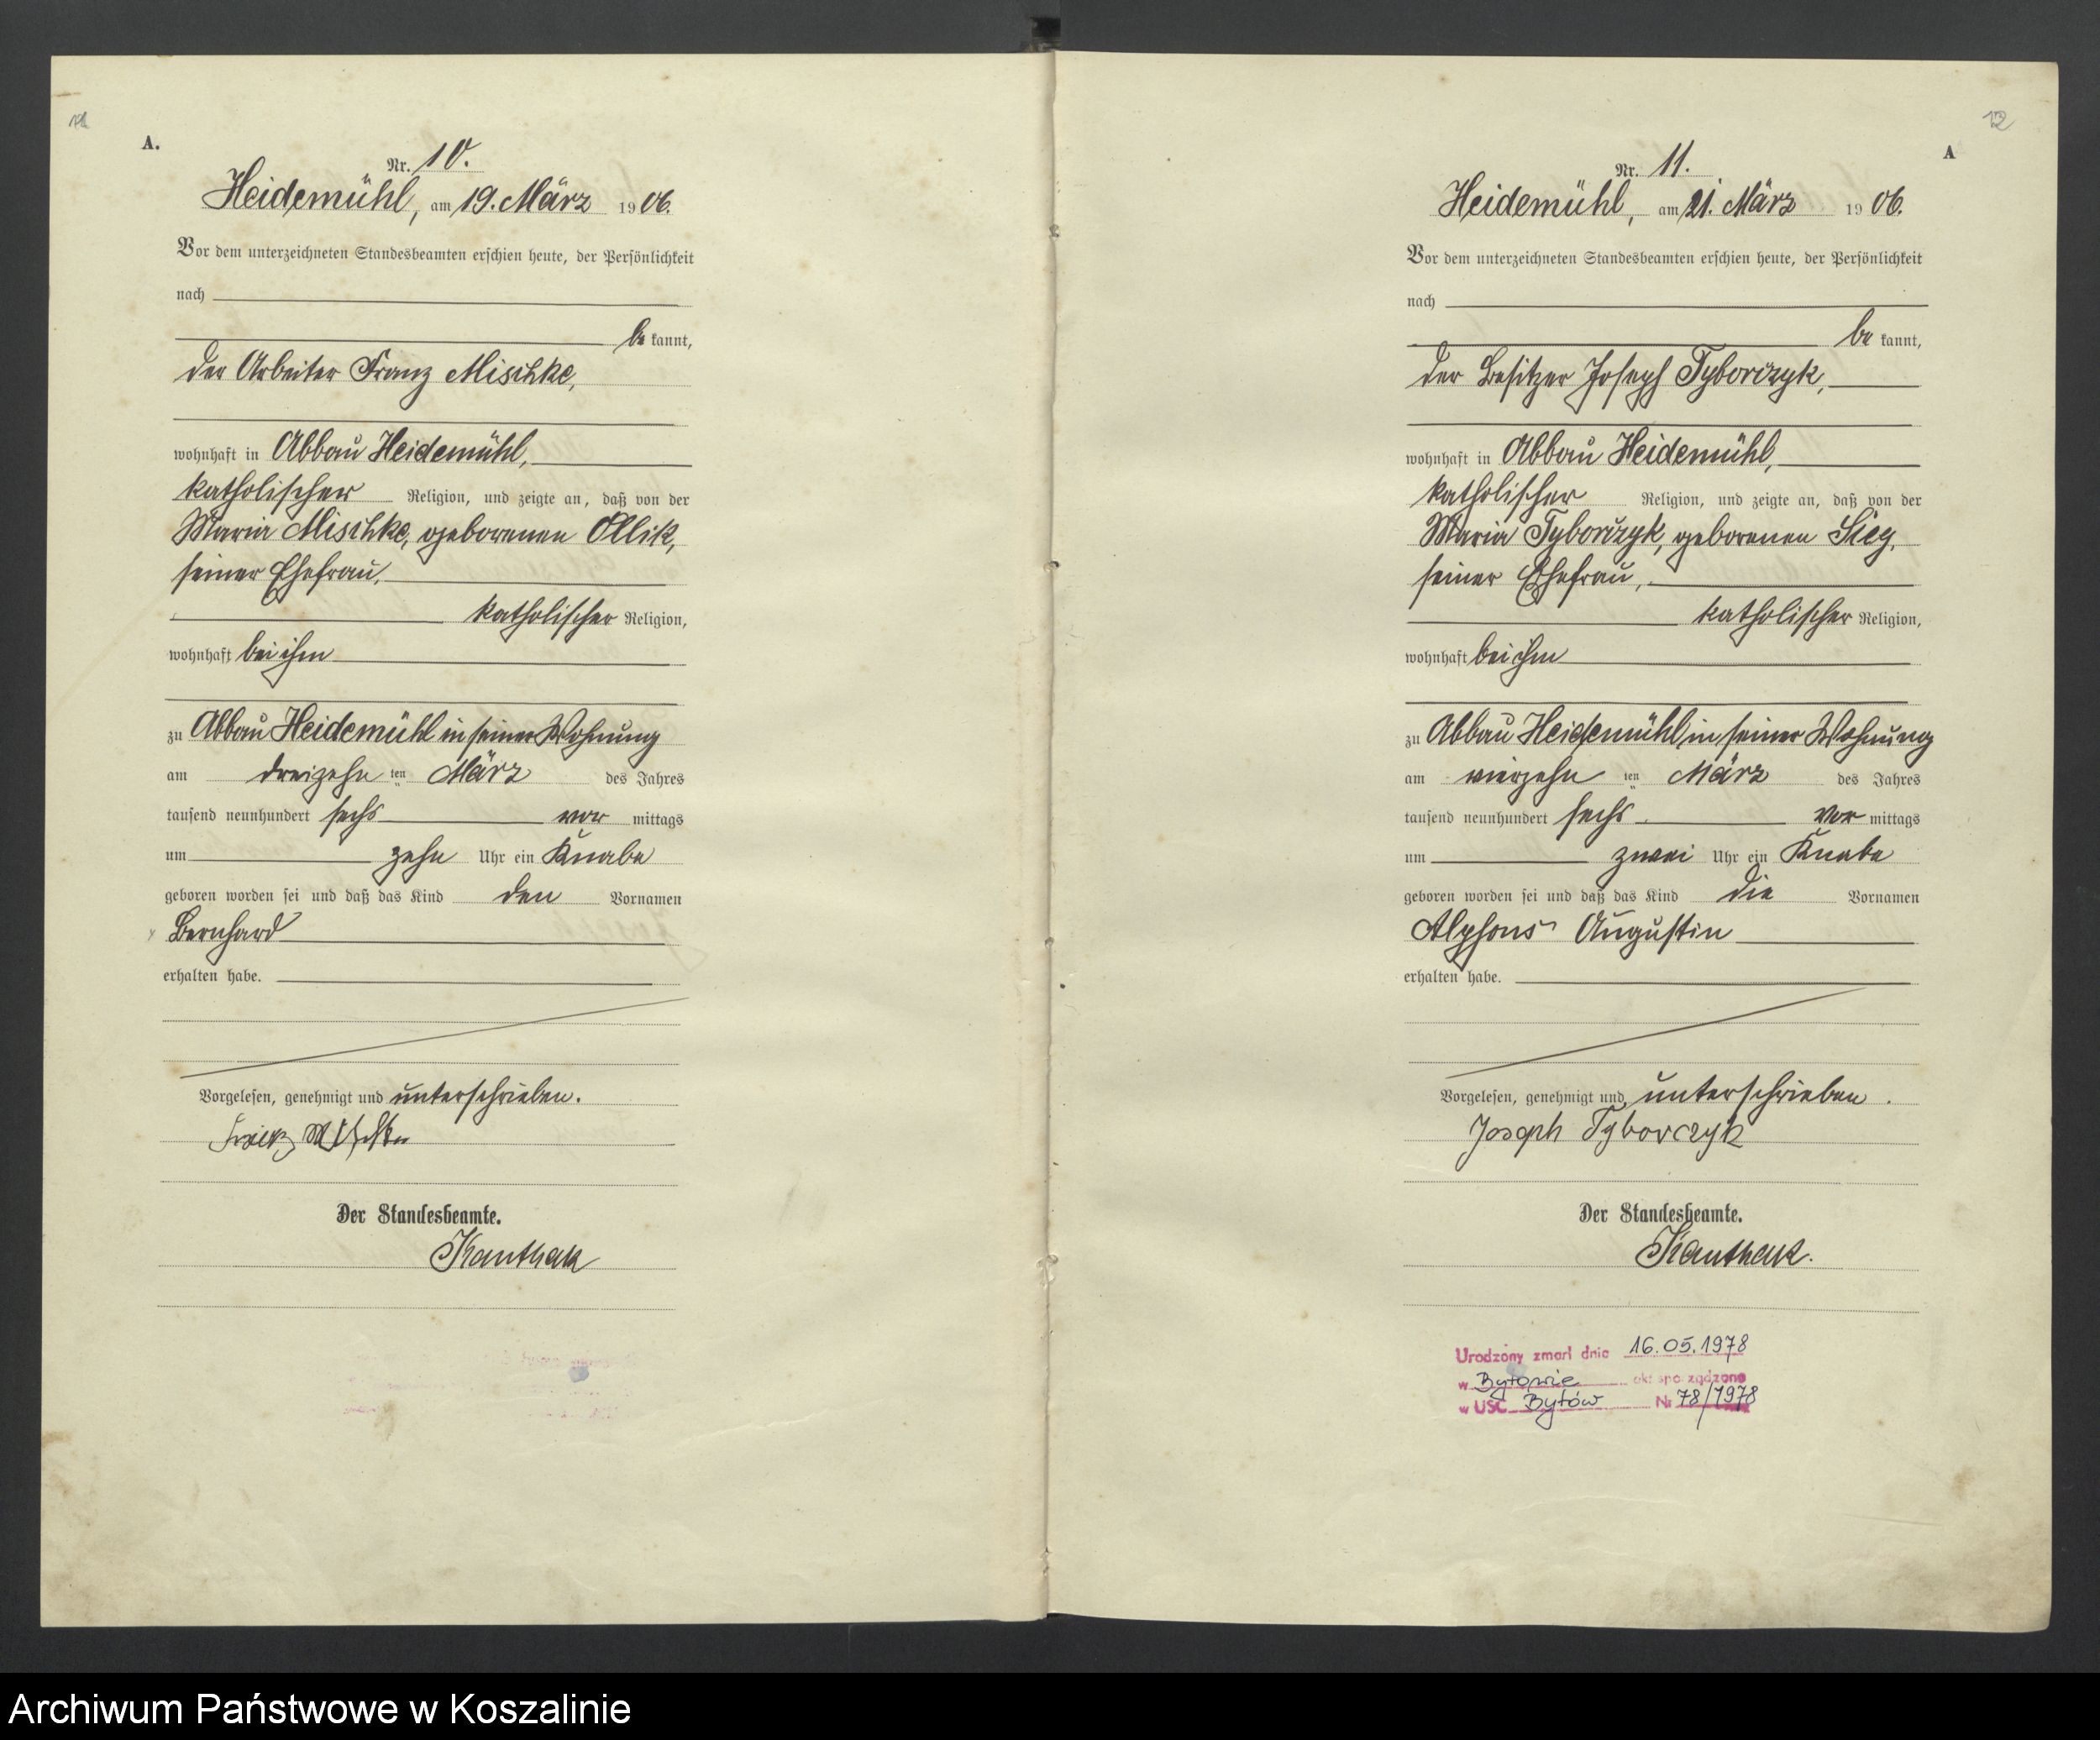 A.
Nr. 10.
Heidemühl, am 19. März 1906.
Vor dem unterzeichneten Standesbeamten erschien heute, der Persönlichkeit
nach
be kannt,
der Arbeiter Franz Mischke,
wohnhaft in Abbau Heidemühl,
katholischer Religion, und zeigte an, daß von der
Maria Mischke, geborenen Ollik,
seiner Ehefrau,
katholischer Religion,
wohnhaft bei ihm
zu Abbau Heidemühl in seiner Wohnung
am dreizehn ten März des Jahres
tausend neunhundert sechs vor mittags
um zehn Uhr ein Knabe
geboren worden sei und daß das Kind den Vornamen
Bernhard
erhalten habe.
Vorgelesen, genehmigt und unterschrieben.
Franz Mischke
Der Standesbeamte.
Kanthak
12
A
Nr. 11.
Heidemühl, am 21. März 1906.
Vor dem unterzeichneten Standesbeamten erschien heute, der Persönlichkeit
nach
be kannt,
der Besitzer Joseph Tyborczyk,
wohnhaft in Abbau Heidemühl,
katholischer Religion, und zeigte an, daß von der
Maria Tyborczyk, geborenen Sieg,
seiner Ehefrau,
katholischer Religion,
wohnhaft bei ihm
zu Abbau Heidemühl in seiner Wohnung
am vierzehn ten März des Jahres
tausend neunhundert sechs vor mittags
um zwei Uhr ein Knabe
geboren worden sei und daß das Kind die Vornamen
Alphons Augustin
erhalten habe.
Vorgelesen, genehmigt und unterschrieben.
Joseph Tyborczyk
Der Standesbeamte.
Kanthak.
Urodzony zmarł dnia 16.05.1978
w Bytowie akt sporządzono
w USC Bytów Nr 78/1978
Archiwum Państwowe w Koszalinie